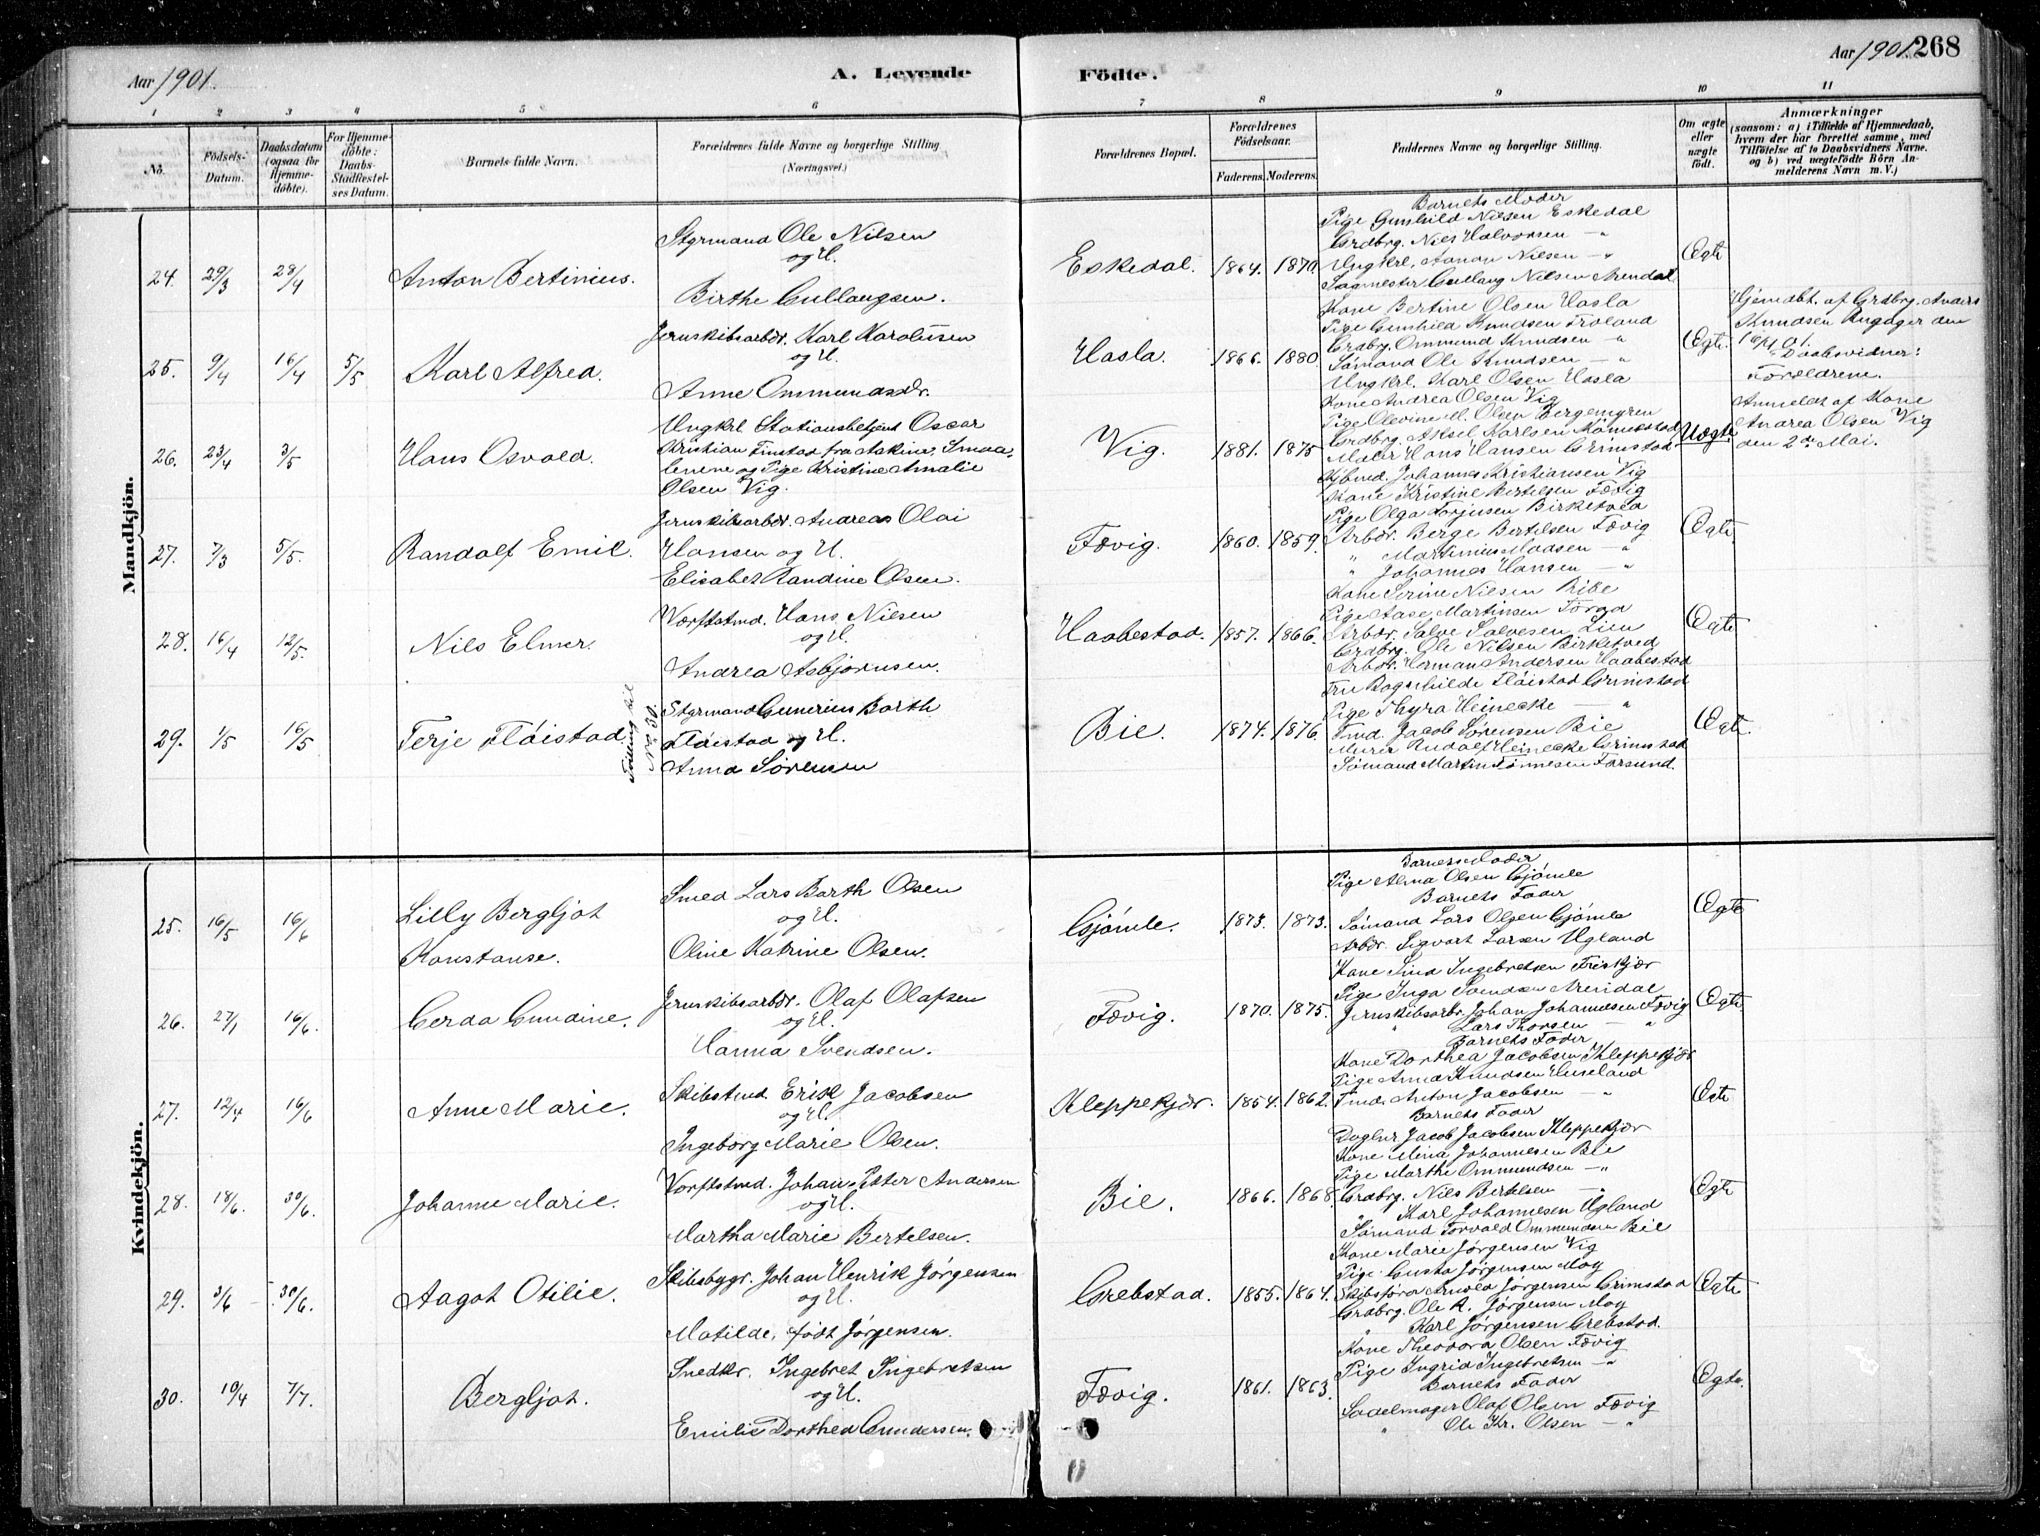 Aar 1901.
A. Levende
Födte.
Aar 1901. 268
1 2 3 4 5 6 7 8 9 10 11
No.
Födsels-Datum.
Daabsdatum (ogsaa for Hjemme-döbte).
For Hjemme-döbte: Daabs-Stadfæstel-ses Datum.
Barnets fulde Navn.
Forældrenes fulde Navne og borgerlige Stilling.
(Næringsvei.)
Forældrenes Bopæl.
Forældrenes Födselsaar.
Faderens. Moderens.
Faddernes Navne og borgerlige Stilling.
Om ægte eller uægte födt.
Anmærkninger
(saasom: a) i Tilfælde af Hjemmedaab,
hvem der har forrettet samme, med
Tilföielse af to Daabsvidners Navne.
og b) ved uægtefödte Börn An-
melderens Navn m. V.)
Mandkjön.
24. 29/3 28/4 Anton Bertinius.
Styrmand Ole Nilsen
og H.
Birthe Gullaugsen.
Eskedal. 1864. 1870.
Barnets Moder
Pige Gunhild Nilsen Eskedal
Grdbrg. Niels Halvorsen — "
Ungkrl. Aanon Nilsen — "
Sagmester Gullaug Nilsen Arendal
Ægte
25. 9/4 16/4 5/5 Karl Alfred.
Jernskibsarbdr. Karl Karoliusen
og H.
Anne Ommundsdr.
Hasla. 1866. 1880.
Kone Bertine Olsen Hasla
Pige Gunhild Knudsen Froland
Grdbrg. Ommund Knudsen — "
Sømand Ole Knudsen — "
Ungkrl. Karl Olsen Hasla
Ægte.
Hjemdbt. af Grdbrg. Anders
Knudsen Rugager den
16/4 01.
Daabsvidner:
Forældrene.
26. 23/4 3/5 Hans Osvald.
Ungkrl Stationsbetjent Oscar
Kristian Finstad fra Askim, Smaa-
lenene og Pige Kristine Amalie
Olsen Vig.
Vig. 1881. 1875
Kone Andrea Olsen Vig
Pige Olevine M. Olsen Bergemyren
Grdbrg. Aksel Karlsen
Maler Hans Hansen Grimstad
Johannes Kristiansen Vig
Uægte
Anmeldt af Kone
Andrea Olsen Vig
den 2den Mai.
27. 7/3 5/5. Randolf Emil.
Jernskibsarbdr. Andreas Olai
Hansen og H.
Elisabet Randine Olsen.
Fævig. 1860. 1859.
Kone Kristine Bertelsen Fævig
Pige Olga Torjusen Birketved
Arbdr. Berge Bertelsen Fævig
" Martinius Madsen — "
" Johannes Hansen — "
Ægte
28. 16/4 12/5. Nils Elmer.
Værftstmd. Hans Nilsen
og H.
Andrea Asbjørnsen.
Haabestad. 1857. 1866.
Kone Serine Nilsen Bibe
Pige Aase Martinsen
Arbdr. Salve Salvesen Lien
Grdbrg. Ole Nilsen Birketved
Arbdr. Herman Andersen Haabestad
Ægte
29. 1/5 16/5 Terje Fløistad.
Tvilling til
No 30.
Styrmand Gunerius Barth
Fløistad og H.
Anna Sørensen
Bie. 1874. 1876.
Fru Bagnhilde Fløistad Grimstad
Pige Thyra Heinecke — "
Tmd. Jacob Sørensen Bie
Murer Rudolf Heinecke Grimstad
Sømand Martin Tønnesen Farsund.
Ægte.
Kvindekjön.
25. 16/5 16/6 Lilly Bergljot
Konstanse.
Smed Lars Barth Olsen
og H.
Oline Katrine Olsen.
Gjømle. 1873. 1873.
Barnets Moder
Pige Alma Olsen Gjømle
Barnets Fader
Sømand Lars Olsen Gjømle
Arbdr. Sigvart Larsen Ugland
Ægte
26. 27/1 16/6. Gerda Gundine.
Jernskibsarbdr. Olaf Olafsen
og H.
Hanna Svendsen.
Fævig. 1870. 1875.
Kone Sina Ingebretsen Friskjær
Pige Inga Svendsen Arendal
Jernskibsarbr. Johan Johannesen Fævig
" Lars Thorsen — "
Barnets Fader
Ægte
27. 12/4 16/6 Anne Marie.
Skibstmd. Erik Jacobsen
og H.
Ingeborg Marie Olsen.
Kleppekjær. 1854. 1862.
Kone Dorthea Jacobsen Kleppekjær
Pige Anna Knudsen Huseland
Tmd. Anton Jacobsen — "
Barnets Fader
Daglnr Jacob Jacobsen Kleppekjær
Ægte
28. 18/6. 30/6. Johanne Marie.
Værftstmd. Johan Peter Andersen
og H.
Martha Marie Bertelsen.
Bie. 1866. 1868.
Kone Mina Johannesen Bie
Pige Marthe Ommundsen — "
Grdbrg. Nils Bertelsen — "
" Karl Johannesen Ugland
Sømand Torvald Ommundsen Bie
Ægte
29. 3/6 30/6. Aagot Otilie.
Skibsbygr. Johan Henrik Jørgensen
og H.
Matilde, født Jørgensen.
Grebstad. 1855. 1864.
Kone Marie Jørgensen Vig
Pige Gusta Jørgensen Moy
Skibsføra Arnold Jørgensen Grimstad
Grdbrg. Ole A. Jørgensen Moy
" Karl Jørgensen Grebstad.
Ægte
30. 10/4 7/7. Bergljot.
Snedkr. Ingebret Ingebretsen
og H.
Emilie Dorthea Gundersen.
Fævig. 1861. 1863.
Kone Theodora Olsen Fævig
Pige Ingrid Ingebretsen — "
Barnets Fader
Sadelmager Olaf Olsen Fævig
" Ole Kr. Olsen — "
Ægte.